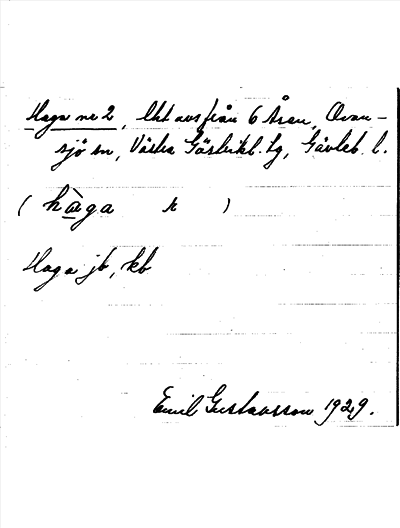 Haga nr 2, lht avs från 6 Åsen, Ovan-
sjö sn, Västra Gästrikl. tg, Gävleb. l.
( hàga k )
Haga jb, kb
Emil Gustavsson 1929.